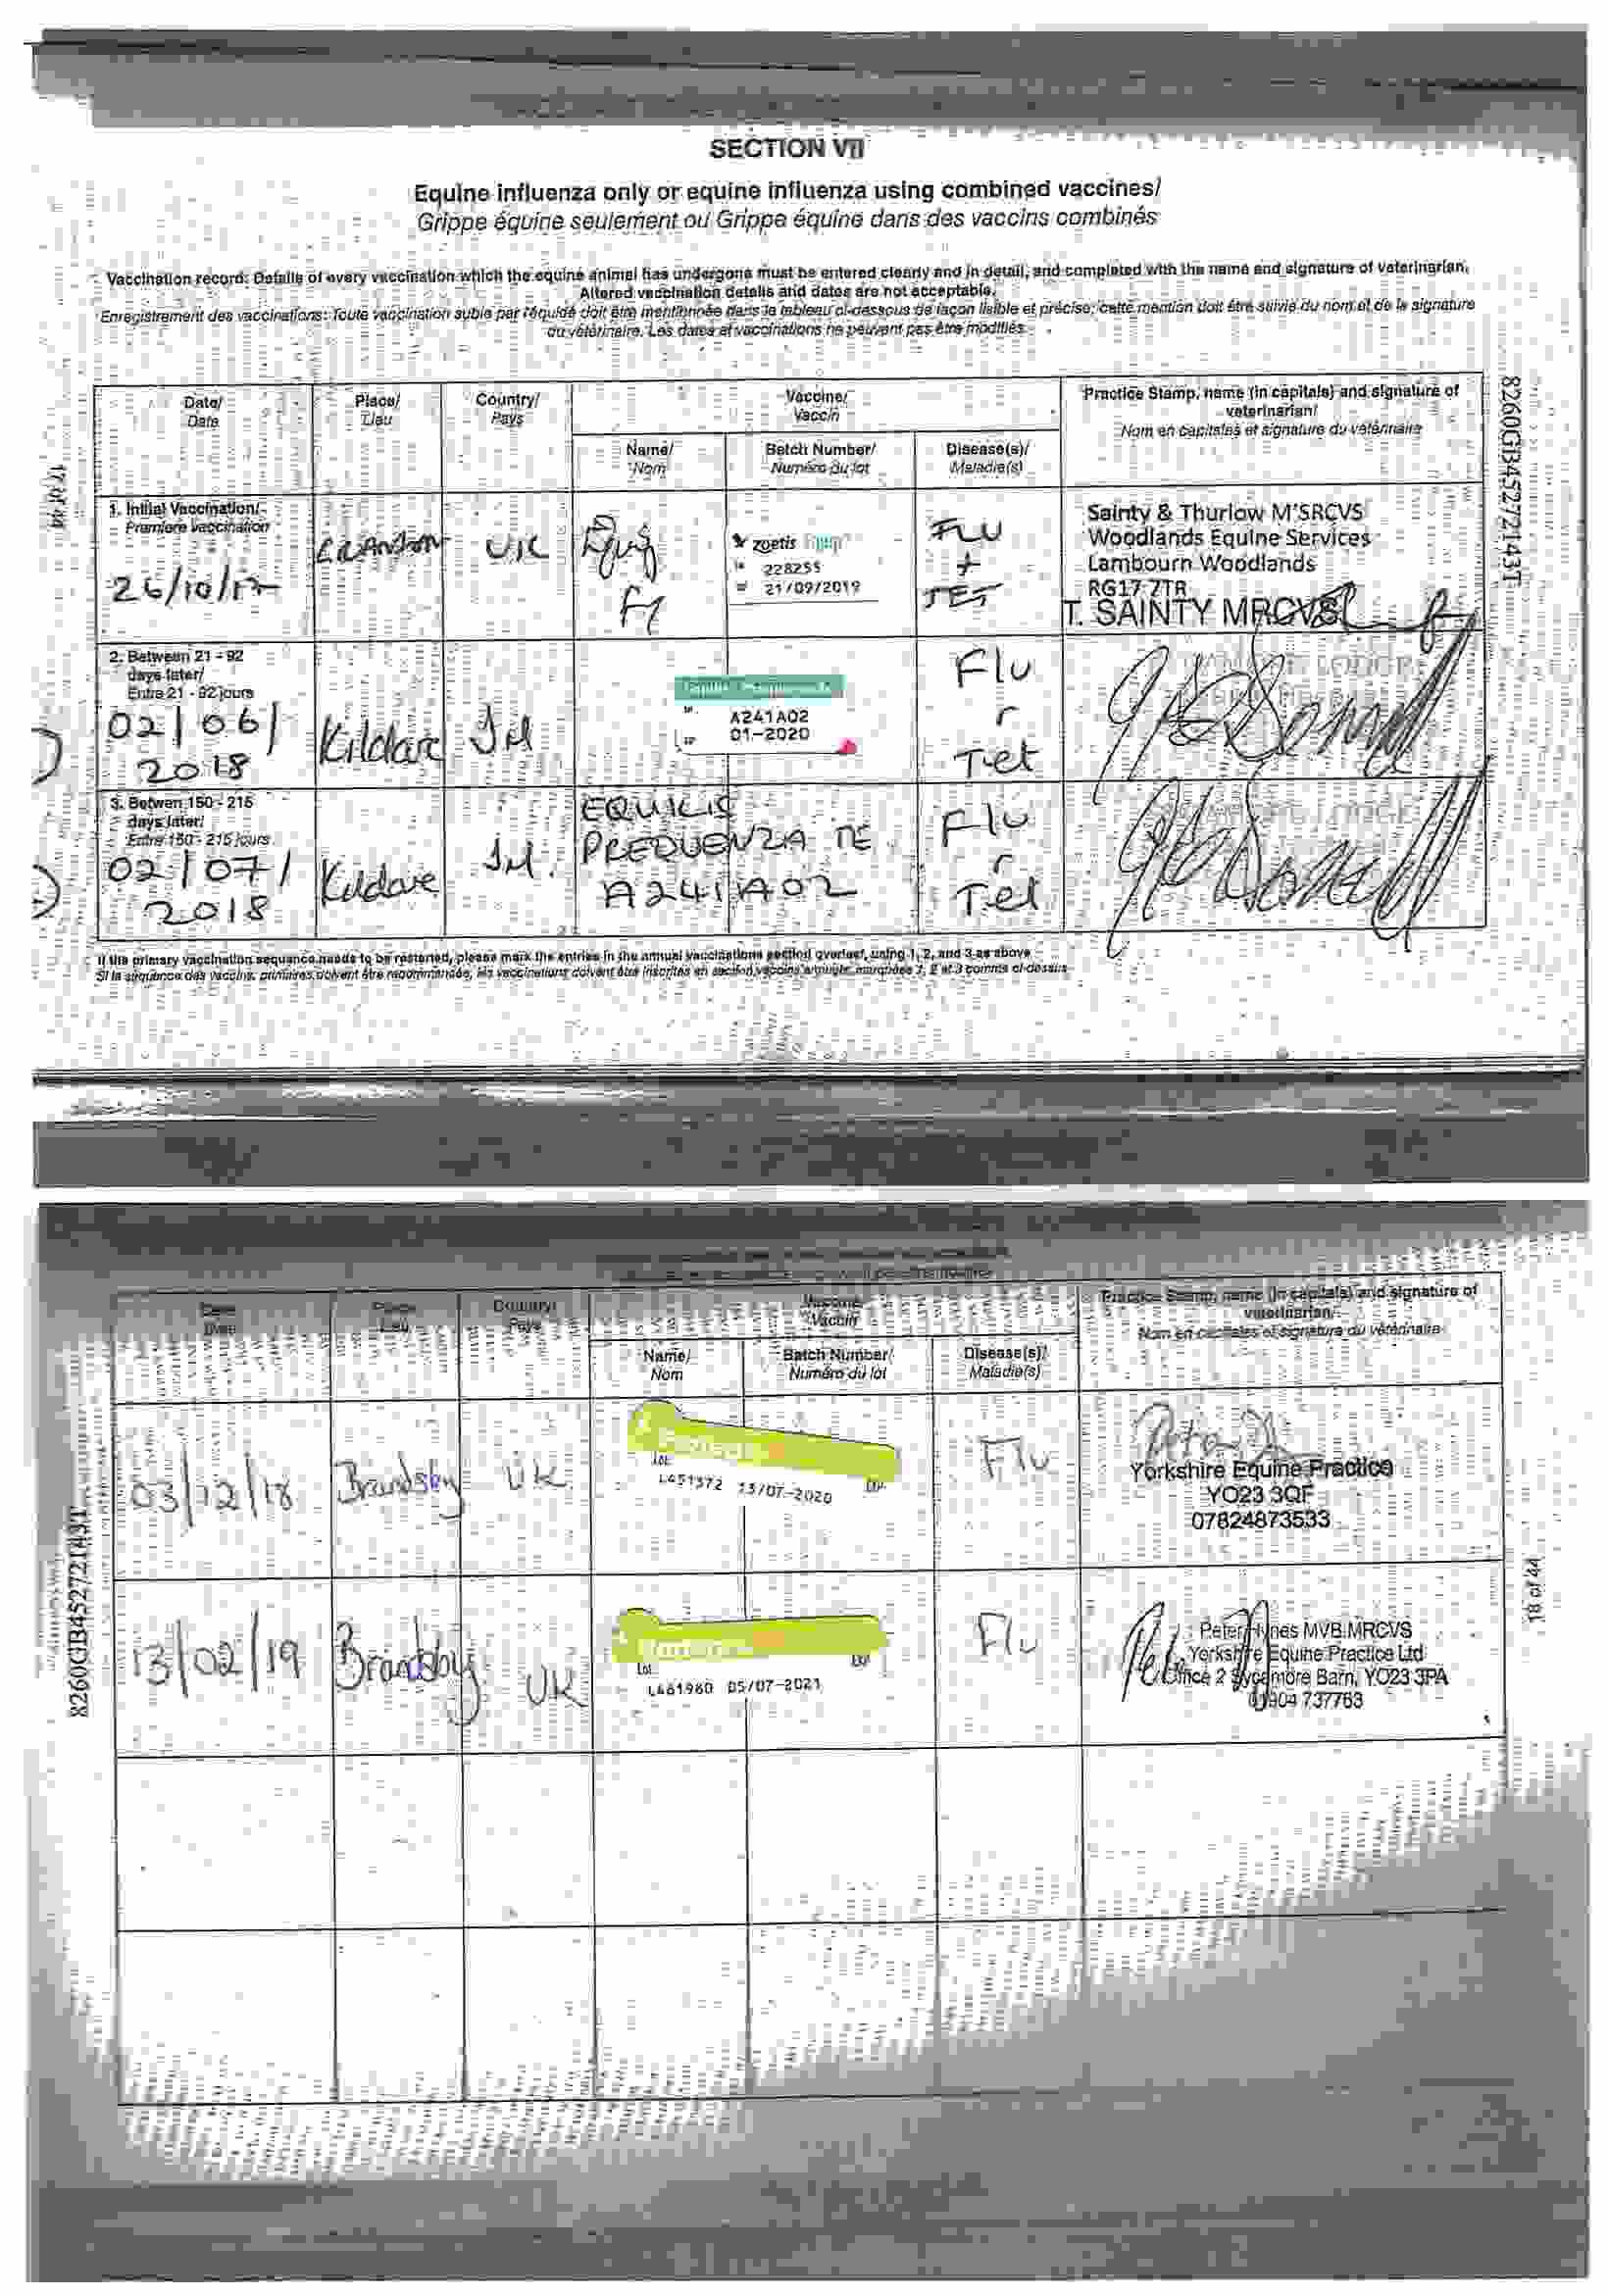 SECTION VII
Equine influenza only or equine influenza using combined vaccines/
Grippe équine seulement ou Grippe équine dans des vaccins combinés
Vaccination record: Details of every vaccination which the equine animal has undergone must be entered clearly and in detail, and completed with the name and signature of veterinarian.
Altered vaccination details and dates are not acceptable.
Enregistrement des vaccinations: Toute vaccination subie par l'équidé doit être mentionnée dans le tableau ci-dessous de façon lisible et précise; cette mention doit être suivie du nom et de la signature
du vétérinaire. Les dates et vaccinations ne peuvent pas être modifiés
17 of 44
8260GB45272143T
Date/
Date
Place/
Lieu
Country/
Pays
Vaccine/
Vaccin
Name/
Nom
Batch Number/
Numéro du lot
Disease(s)/
Maladie(s)
Practice Stamp, name (in capitals) and signature of
veterinarian/
Nom en capitales et signature du vétérinaire
1. Initial Vaccination/
Premiere vaccination
26/10/17
UK
zoetis
228255
21/09/2019
FLU
+
TET
Sainty & Thurlow M'SRCVS
Woodlands Equine Services
Lambourn Woodlands
RG17 7TR
T. SAINTY MRCVS
2. Between 21 - 92
days later/
Entre 21 - 92 jours
02/06/
2018
Kildare
A241A02
01-2020
Flu
Tet
3. Betwen 150 - 215
days later/
Entre 150 - 215 jours
02/07/
2018
Kildare
EQUILIS
PREQUENZA TE
A241A02
Flu
Tet
If the primary vaccination sequence needs to be restarted, please mark the entries in the annual vaccinations section overleaf, using 1, 2, and 3 as above
8260GB45272143T
18 of 44
Country/
Pays
Vaccin
Practice Stamp, name (in capitals) and signature of
veterinarian/
Nom en capitales et signature du vétérinaire
Name/
Nom
Batch Number/
Numéro du lot
Disease(s)/
Maladie(s)
03/12/18
Brandsby
UK
Lot
L451372 13/07-2020
Flu
Yorkshire Equine Practice
YO23 3QF
07824873533
13/02/19
Brandsby
UK
Lot
L461980 05/07-2021
Flu
Peter Hynes MVB MRCVS
Yorkshire Equine Practice Ltd
Office 2 Sycamore Barn, YO23 3PA
01904 737763